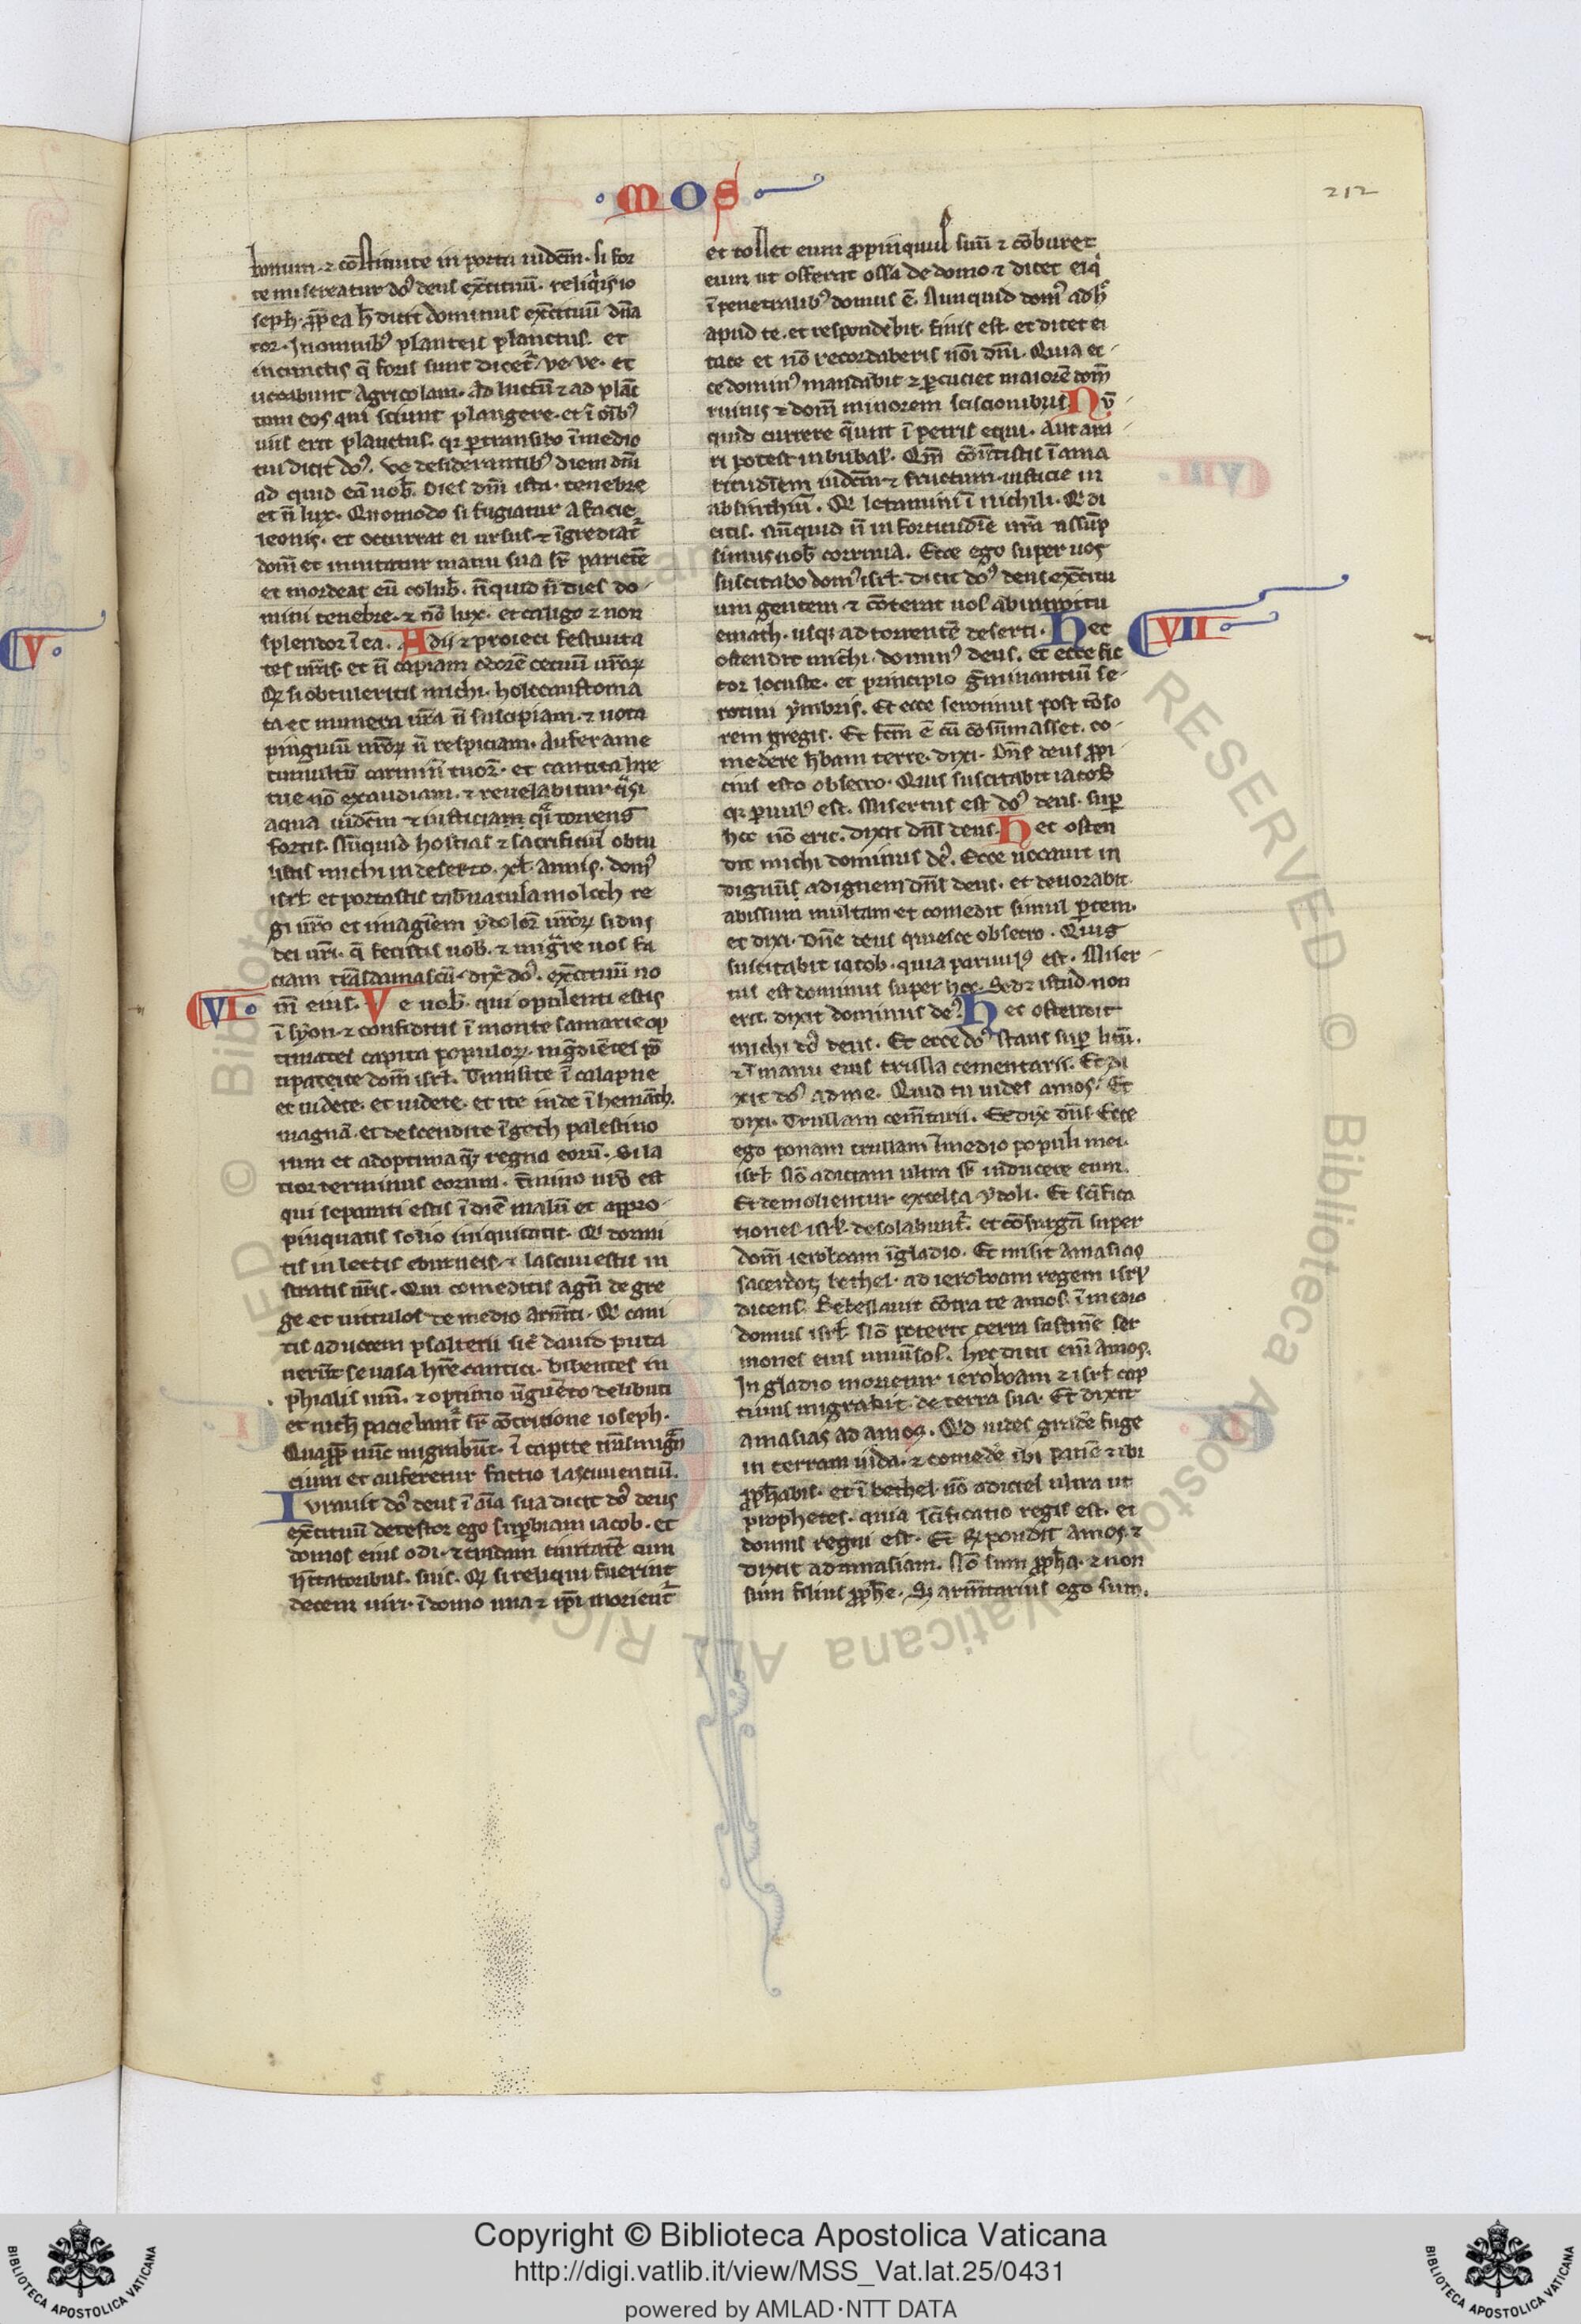 mos
212
bonum ⁊ cōstituite in porta iudiciū. si for
te misereatur dn̄s deus exercituū. reliquiis io
seph. ꝓpt̄ea h̄ dicit dominus exc̄ituū dn̄a
tor. In omnibꝰ plateis planctus. et
in cunctis q̄ foris sunt dicet᷑ ve. ve. et
uocabunt agricolam. ad luctū ⁊ ad planc
tum eos qui sciunt plangere. et ī oībꝰ
uiis erit planctus. qꝛ ꝑtransibo ī medio
tui dicit dn̄s. Ve desiderantibꝰ diem dn̄i
ad quid eā uob̄. Dies dn̄i ista. tenebre
et n̄ lux. Quomodo si fugiatur a facie
leonis. et occurrat ei ursus. ⁊ īgrediat᷑
domū et innitatur manu sua sr̄ parietē
et mordeat eū colub̄. n̄quid n̄ dies do
mini tenebre. ⁊ nō lux. et caligo ⁊ non
splendor ī ea. Odii ⁊ proieci festiuita
V.
tes ur̄as. et n̄ capiam odorē cetuū ur̄oꝝ
Qꝫ si obtuleritis michi. holocaustoma
ta et munera ur̄a n̄ suscipiam. ⁊ uota
pinguiū ur̄oꝝ n̄ respiciam. Aufer a me
tumultū carminū tuoꝝ. et cantica lire
tue nō exaudiam. ⁊ reuelabitur q̄si
aqua iudiciū ⁊ iusticiam q̄i torrens
fortis. Nūquid hostias ⁊ sacrificiū obtu
listis michi in deserto. xl. annis. domꝰ
isrł. et portastis tab̄nacula moloch re
gi ur̄o et imaginem ydoloꝝ ur̄oꝝ sidus
dei ur̄i. q̄ fecistis uob̄. ⁊ migrare uos fa
ciam trās damascū. dix̄ dn̄s. exc̄ituū no
VI.
m̄ eius. Ve uob̄. qui opulenti estis
ī syon. ⁊ confiditis ī monte samarie op
timates capita populoꝝ. ingrediētes pō
patice domū isrł. Transite ī calapne
et uidete. et uidete. et ite inde ī hemath.
magnā. et descendite ī geth palestino
rum et ad optima q̄ꝫ regna eorū. Si la
tior terminus eorum. t̄mino ur̄o est
qui separati estis ī diē malū et appro
pinquatis solio iniquitatis. Qui dormi
tis in lectis eburneis. ⁊ lasciuitis in
stratis ur̄is. Qui comeditis agnū de gre
ge et uitulos de medio arm̄ti. Qui cani
tis ad uocem psalterii sic̄ dauid puta
uerūt se uasa hr̄e cantici. bibentes in
phialis uinū. ⁊ optimo ūguēto delibuti
et nich̄ paciebant᷑ sr̄ cōtritione ioseph.
Quaꝓp̄ nūc migrabūt. ī capite trāsmigrā
cium et auferetur factio lasciuientiū.
Iurauit dn̄s deus ī aīa sua dicit dn̄s deus
exc̄ituū detestor ego suꝑbiam iacob. et
domos eius odi. ⁊ tradam ciuitatē cum
h̄itatoribus. suis. Qꝫ si reliqui fuerint
decem uiri. ī domo una ⁊ ip̄i morient᷑
et tollet eum propinquus suus ⁊ cōburet
eum ut offerat ossa de domo ⁊ dicet ei q̄
ī penetralibꝰ domus ē. Nunquid domꝰ adhꝰ
apud te. et respondebit. finis est. et dicet ei
tace et nō recorderis nōi dn̄i. Quia ec
ce dominꝰ mandabit ⁊ ꝑcuciet maiorē domū
ruinis ⁊ domū minorem scissionibus. Nū
quid currere q̄unt ī petris equi. Aut ara
ri potest in bubal̄. Qm̄ cōuertistis ī ama
ritudinem iudiciū ⁊ fructum iusticie in
absinthiū. Qui letamini ī nichili. Qui di
citis. Nūquid n̄ in fortitudine nr̄a assūp
simus nob̄ cornua. Ecce ego super uos
suscitabo domꝰ isrł. dicit dn̄s deus exc̄itu
um gentem. ⁊ cōterat uos ab introitu
emath. usqꝫ ad torrentē deserti. Hec
VII
ostendit michi. dominꝰ deus. et ecce fic
tor locuste. et principio germinantiū se
rotini ymbris. Et ecce serotinus post tōso
rem gregis. Et fc̄m ē cū cōsumasset. co
medere h̄bam terre. dixi. Dn̄e deus ꝓpi
cius esto obsecro. Quis suscitabit iacob
qꝛ paruulꝰ est. Misertus est dn̄s deus. suꝑ
hoc nō erit. dixit dn̄s deus. Hec osten
dit michi dominus ds̄. Ecce uocauit in
dignum ad ignem dn̄s deus. et deuorabit.
abissum multam et comedit simul ꝑtem.
et dixi. Dn̄e deus quiesce obsecro. Quis
suscitabit iacob. quia paruulꝰ est. Miser
tus est dominus super hoc. Sed ⁊ istud non
erit. dixit dominus ds̄. Hec ostendit
michi dn̄s deus. Et ecce dn̄s stans suꝑ litū.
⁊ ī manu eius trulla cementarii. Et di
xit dn̄s ad me. Quid tu uides amos. Et
dixi. Trullam cem̄tarii. Et dix̄ dn̄s. Ecce
ego ponam trullam ī medio populi mei.
isrł. Nō adiciam ultra sr̄ inducere eum.
Et demolientur excelsa ydoli. Et sc̄ifica
tiones isrł. desolabunt᷑. et cōsurgā super
domū ieroboam ī gladio. Et misit amasias
sacerdos bethel. ad ieroboam regem isrł
dicens. Rebellauit cōtra te amos. ī medio
domus isrł. Nō poterit terra sustinē ser
mones eius uniuersos. Hec dicit enī amos.
In gladio morietur ieroboam ⁊ isrł cap
tiuus migrabit. de terra sua. Et dixit
amasias ad amos. Qui uides gradē fuge
in terram iuda. ⁊ comedē ibi panē ⁊ ibi
ꝓph̄abis. et ī bethel nō adiciel ultra ut
prophetes. quia sc̄ificatio regis est. et
domus regni est. Et respondit amos. ⁊
dixit ad amasiam. Nō sum ꝓph̄a. ⁊ non
sum filius ꝓph̄e. Sꝫ arm̄tarius ego sum.
Copyright © Biblioteca Apostolica Vaticana
http://digi.vatlib.it/view/MSS_Vat.lat.25/0431
powered by AMLAD·NTT DATA
BIBLIOTECA APOSTOLICA VATICANA
BIBLIOTECA APOSTOLICA VATICANA